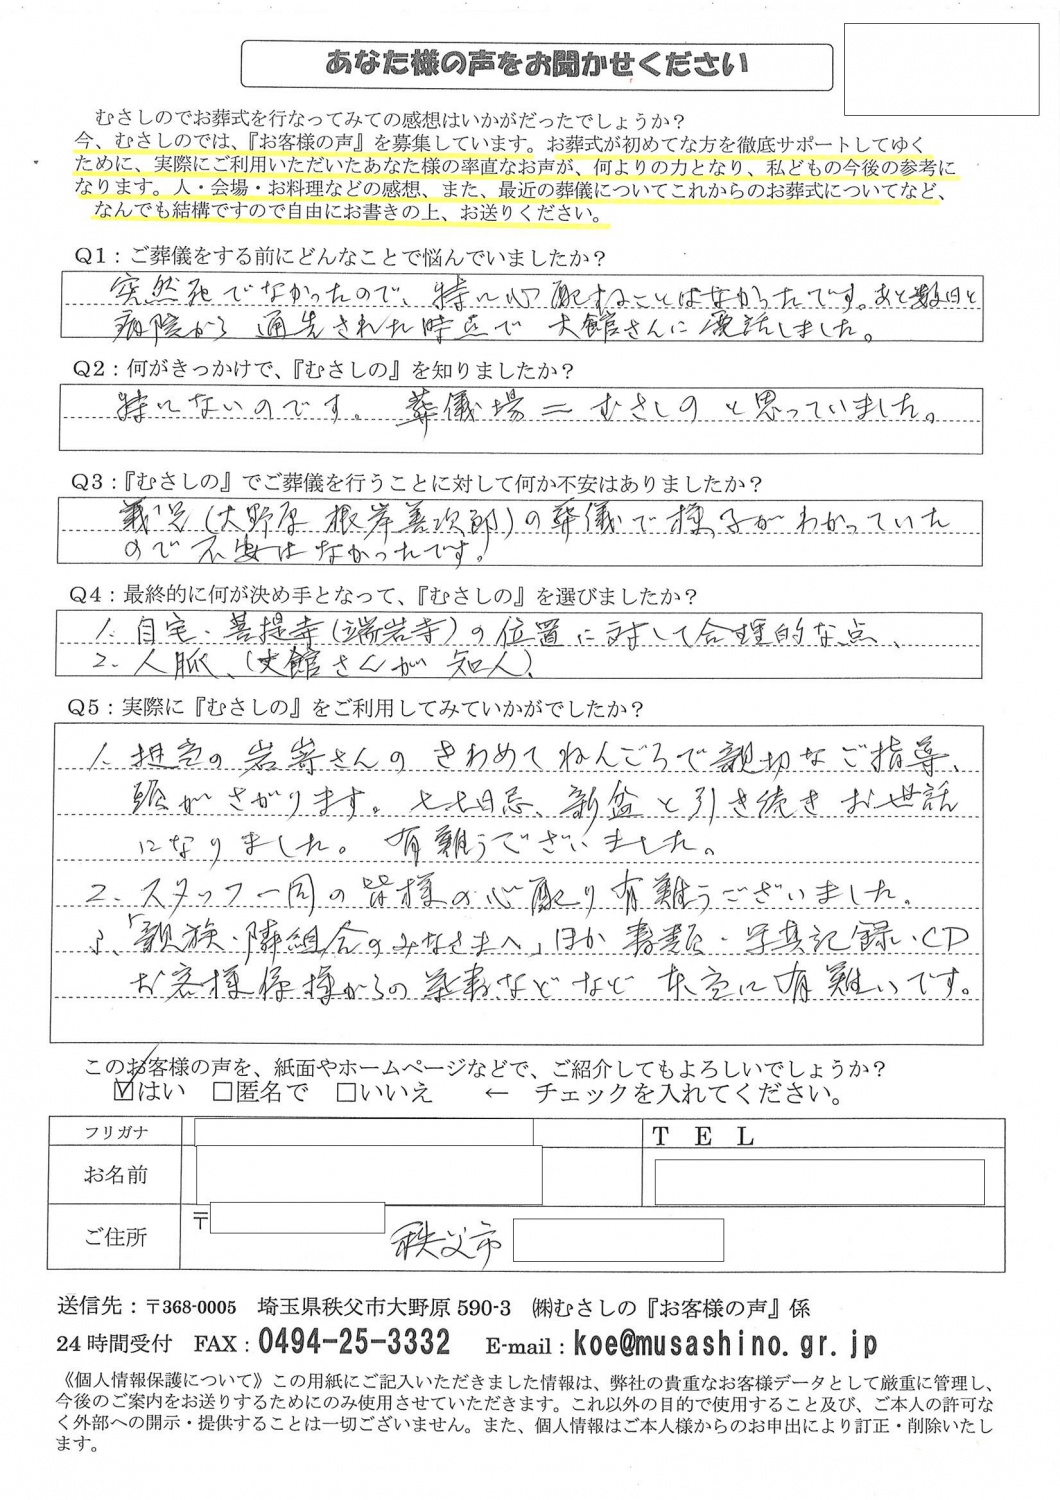 あなた様の声をお聞かせください
むさしのでお葬式を行なってみての感想はいかがだったでしょうか？
今、むさしのでは、『お客様の声』を募集しています。お葬式が初めてな方を徹底サポートしてゆく
ために、実際にご利用いただいたあなた様の率直なお声が、何よりの力となり、私どもの今後の参考に
なります。人・会場・お料理などの感想、また、最近の葬儀についてこれからのお葬式についてなど、
なんでも結構ですので自由にお書きの上、お送りください。
Q1：ご葬儀をする前にどんなことで悩んでいましたか？
突然死でなかったので、特に心配することはなかったです。あと数日と
病院から通告された時点で 大館さんに電話しました。
Q2：何がきっかけで、『むさしの』を知りましたか？
特にないのです。 葬儀場＝むさしの と思っていました。
Q3：『むさしの』でご葬儀を行うことに対して何か不安はありましたか？
義兄(大野原 根岸善次郎)の葬儀で様子がわかっていた
ので不安はなかったです。
Q4：最終的に何が決め手となって、『むさしの』を選びましたか？
1. 自宅・菩提寺(端岩寺)の位置に対して合理的な点、
2. 人脈、(大館さんが 知人)
Q5：実際に『むさしの』をご利用してみていかがでしたか？
1. 担当の岩嵜さんの きわめてねんごろで親切なご指導、
頭がさがります。七七日忌、新盆と引き続きお世話
になりました。有難うございました。
2. スタッフ一同の皆様の心配り有難うございました。
3.「親族・隣組合のみなさまへ」ほか 書類・写真記録・CD
お客様 様からの などなど 本当に有難いです。
このお客様の声を、紙面やホームページなどで、ご紹介してもよろしいでしょうか？
☑はい □匿名で □いいえ ← チェックを入れてください。
フリガナ TEL
お名前
〒
ご住所 秩父市
送信先：〒368-0005 埼玉県秩父市大野原 590-3 ㈱むさしの『お客様の声』係
24 時間受付 FAX：0494-25-3332 E-mail：koe@musashino.gr.jp
《個人情報保護について》この用紙にご記入いただきました情報は、弊社の貴重なお客様データとして厳重に管理し、
今後のご案内をお送りするためにのみ使用させていただきます。これ以外の目的で使用すること及び、ご本人の許可な
く外部への開示・提供することは一切ございません。また、個人情報はご本人様からのお申出により訂正・削除いたし
ます。